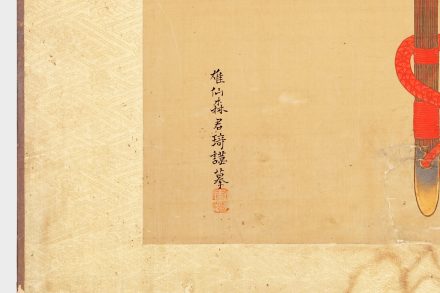 雄仙森君琦謹摹